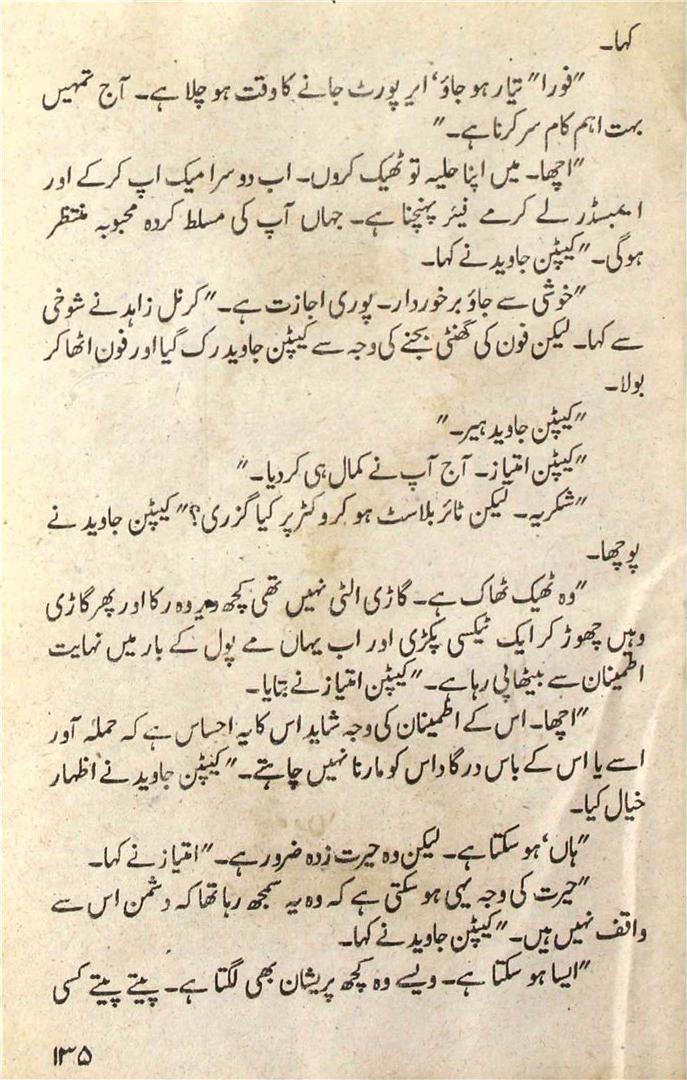 کہا۔
”فورا“ تیار ہو جاؤ‘ ایر پورٹ جانے کا وقت ہو چلا ہے۔ آج تمہیں
بہت اہم کام سر کرنا ہے۔“
”اچھا۔ میں اپنا حلیہ تو ٹھیک کروں۔ اب دوسرا میک اپ کرکے اور
ایمبسڈر لے کر مے فیئر پہنچنا ہے۔ جہاں آپ کی مسلط کردہ محبوبہ منتظر
ہوگی۔“ کیپٹن جاوید نے کہا۔
”خوشی سے جاؤ برخوردار۔ پوری اجازت ہے۔“ کرنل زاہد نے شوخی
سے کہا۔ لیکن فون کی گھنٹی بجنے کی وجہ سے کیپٹن جاوید رک گیا اور فون اٹھا کر
بولا۔
”کیپٹن جاوید ہیر۔“
”کیپٹن امتیاز۔ آج آپ نے کمال ہی کردیا۔“
”شکریہ۔ لیکن ٹائر بلاسٹ ہو کر وکٹر پر کیا گزری؟“ کیپٹن جاوید نے
پوچھا۔
”وہ ٹھیک ٹھاک ہے۔ گاڑی الٹی نہیں تھی کچھ دیر وہ رکا اور پھر گاڑی
وہیں چھوڑ کر ایک ٹیکسی پکڑی اور اب یہاں مے پول کے بار میں نہایت
اطمینان سے بیٹھا پی رہا ہے۔“ کیپٹن امتیاز نے بتایا۔
”اچھا۔ اس کے اطمینان کی وجہ شاید اس کا یہ احساس ہے کہ حملہ آور
اسے یا اس کے باس درگا داس کو مارنا نہیں چاہتے۔“ کیپٹن جاوید نے اظہار
خیال کیا۔
”ہاں‘ ہو سکتا ہے۔ لیکن وہ حیرت زدہ ضرور ہے۔“ امتیاز نے کہا۔
”حیرت کی وجہ یہی ہو سکتی ہے کہ وہ یہ سمجھ رہا تھا کہ دشمن اس سے
واقف نہیں ہیں۔“ کیپٹن جاوید نے کہا۔
”ایسا ہو سکتا ہے۔ ویسے وہ کچھ پریشان بھی لگتا ہے۔ پیتے پیتے کسی
۱۳۵